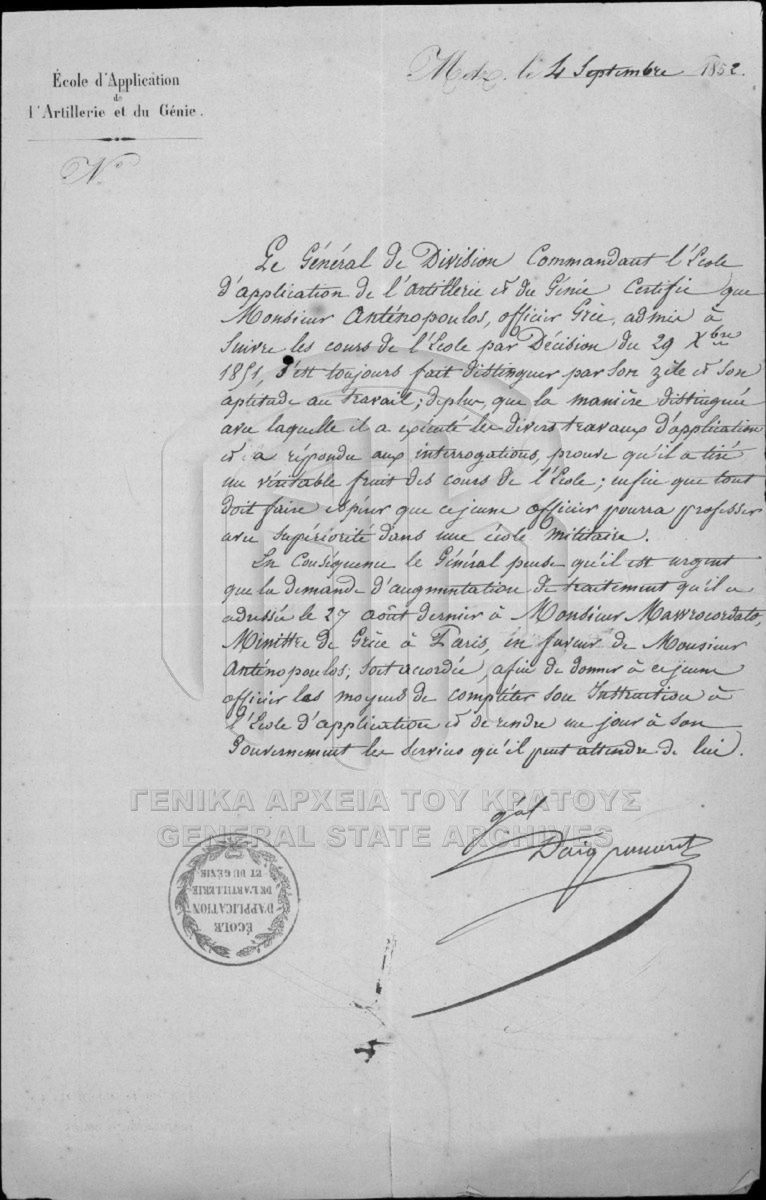 École d'Application
de
l'Artillerie et du Génie.
N°
Metz, le 4 Septembre 1852.
Le Général de Division Commandant l'École
d'application de l'artillerie et du Génie Certifie que
Monsieur Anténopoulos, officier Grèc, admis à
suivre les cours de l'École par Décision du 29 Xbre
1851, s'est toujours fait distinguer par son zèle et son
aptitude au travail; de plus, que la manière distinguée
avec laquelle il a exécuté les divers travaux d'application
et a répondu aux interrogations, prouve qu'il a tiré
un véritable fruit des cours de l'École; enfin que tout
doit faire espérer que ce jeune officier pourra professer
avec supériorité dans une école militaire.
En Conséquence le Général pense qu'il est urgent
que la demande d'augmentation de traitement qu'il a
adressée le 27 août dernier à Monsieur Mavrocordato,
Ministre de Grèce à Paris, en faveur de Monsieur
Anténopoulos, soit accordée, afin de donner à ce jeune
officier les moyens de compléter son Instruction à
l'École d'application et de rendre un jour à son
Gouvernement les services qu'il peut attendre de lui.
ΓΕΝΙΚΑ ΑΡΧΕΙΑ ΤΟΥ ΚΡΑΤΟΥΣ
GENERAL STATE ARCHIVES
gal
ÉCOLE
D'APPLICATION
DE L'ARTILLERIE
ET DU GÉNIE